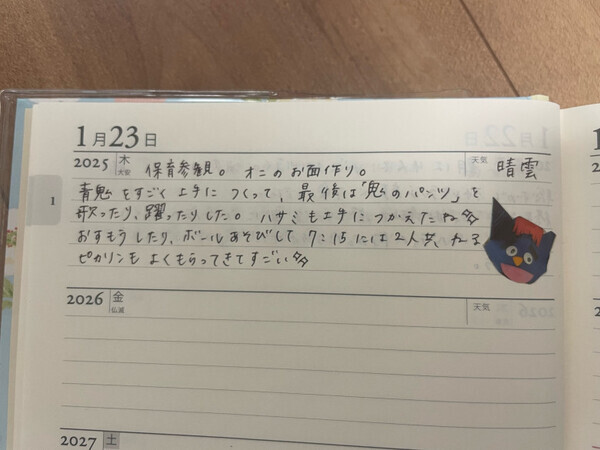 1月23日
2025 木 大安 保育参観。オニのお面作り。 天気 晴雲
青鬼をすごく上手につくって、最後は「鬼のパンツ」を
1
歌ったり、躍ったりした。ハサミも上手につかえたね
おすもうしたり、ボールあそびして 7:15には2人共、ねる
ピカリンもよくもらってきてすごい
2026 金 仏滅 天気
2027 土